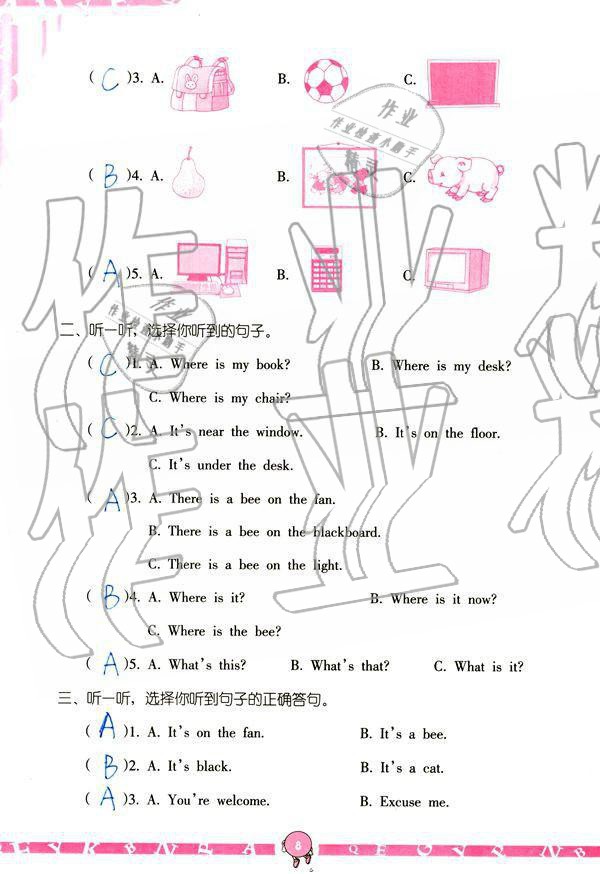 ( C )3. A. B. C.
( B )4. A. B. C.
( A )5. A. B. C.
二、听一听，选择你听到的句子。
( C )1. A. Where is my book? B. Where is my desk?
C. Where is my chair?
( C )2. A. It's near the window. B. It's on the floor.
C. It's under the desk.
( A )3. A. There is a bee on the fan.
B. There is a bee on the blackboard.
C. There is a bee on the light.
( B )4. A. Where is it? B. Where is it now?
C. Where is the bee?
( A )5. A. What's this? B. What's that? C. What is it?
三、听一听，选择你听到句子的正确答句。
( A )1. A. It's on the fan. B. It's a bee.
( B )2. A. It's black. B. It's a cat.
( A )3. A. You're welcome. B. Excuse me.
8
作业
作业检查小助手
作业
作业检查小助手
作业
作业